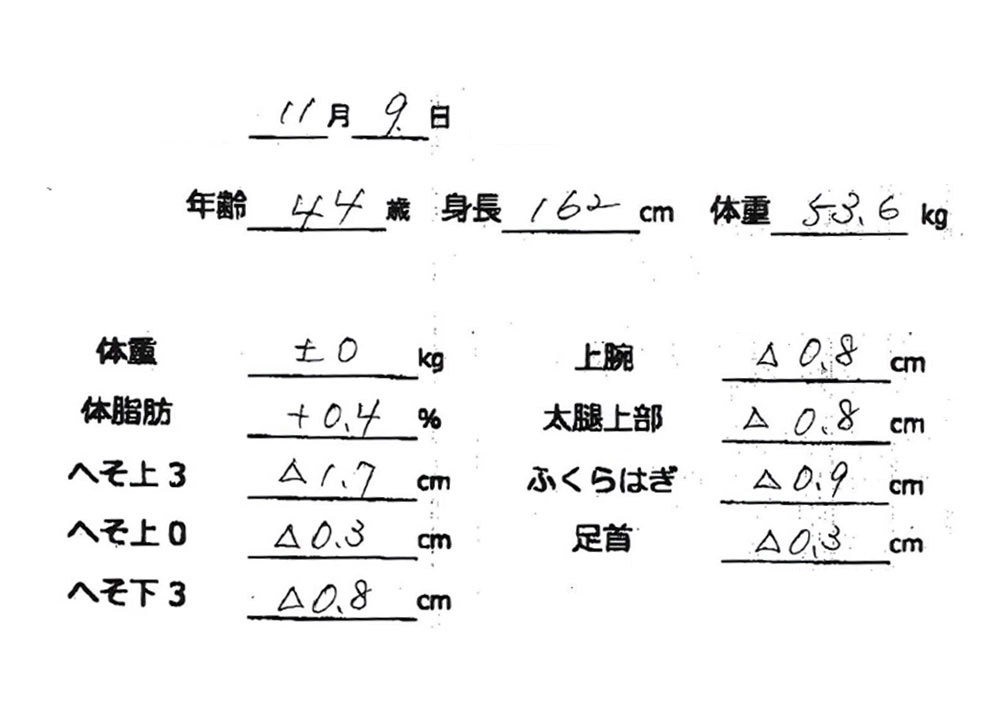 11月9日
年齢 44 歳 身長 162 cm 体重 53.6 kg
体重 ±0 kg 上腕 △0.8 cm
体脂肪 +0.4 % 太腿上部 △0.8 cm
へそ上3 △1.7 cm ふくらはぎ △0.9 cm
へそ上0 △0.3 cm 足首 △0.3 cm
へそ下3 △0.8 cm